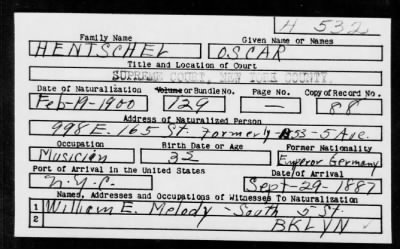 H 532
Family Name Given Name or Names
HENTSCHEL OSCAR
Title and Location of Court
SUPREME COURT, NEW YORK COUNTY.
Date of Naturalization Volume or Bundle No. Page No. Copy of Record No.
Feb-19-1900 129 — 88
Address of Naturalized Person
998 E. 165 St. Formerly - 853-5 Ave.
Occupation Birth Date or Age Former Nationality
Musician 33 Emperor Germany
Port of Arrival in the United States Date of Arrival
N.Y.C. Sept-29-1887
Names, Addresses and Occupations of Witnesses To Naturalization
1 William E. Melody - South 5 St.
2 BKLYN